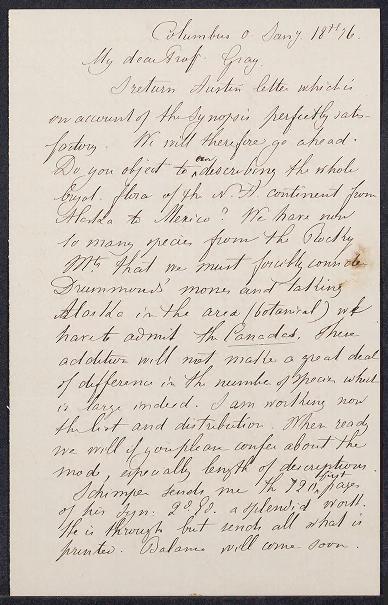 Columbus O. Jany. 18th 76.
My dear Prof. Gray.
I return Austin letter which is
on account of the Synopsis perfectly satis-
factory. We will therefore go ahead.
Do you object to our describing the whole
Bryol. flora of the N. A. continent from
Alaska to Mexico? We have now
so many species from the Rocky
Mts that we must forcibly consider
Drummonds' mosses and taking
Alaska in the area (botanical) we
have to admit the Canadas. These
additions will not make a great deal
of difference in the number of species which
is large indeed. I am working now
the list and distribution. When ready
we will if you please confer about the
mode, especially length of descriptions.
Schimper sends me the 720 first pages
of his Syn. 2d. Ed. a splendid work.
He is through but sends all what is
printed. Balance will come soon.